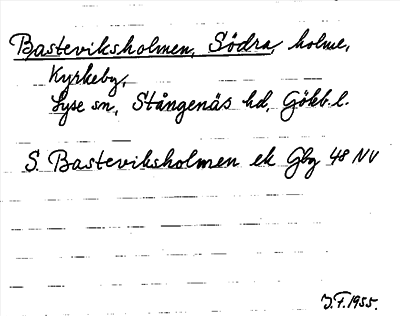 Basteviksholmen, Södra, holme,
Kyrkeby,
Lyse sn, Stångenäs hd, Götéb. l.
S. Basteviksholmen ek Gbg 48 NV
J.F. 1955.